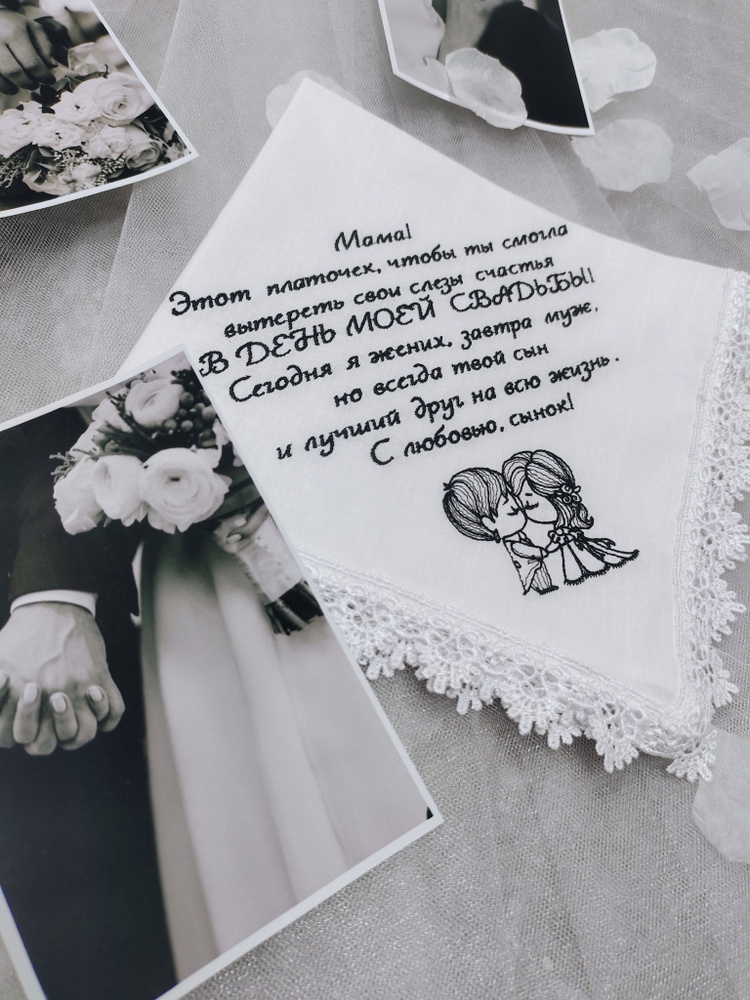 Мама!
Этот платочек, чтобы ты смогла
вытереть свои слезы счастья
В ДЕНЬ МОЕЙ СВАДЬБЫ!
Сегодня я жених, завтра муж,
но всегда твой сын
и лучший друг на всю жизнь.
С любовью, сынок!